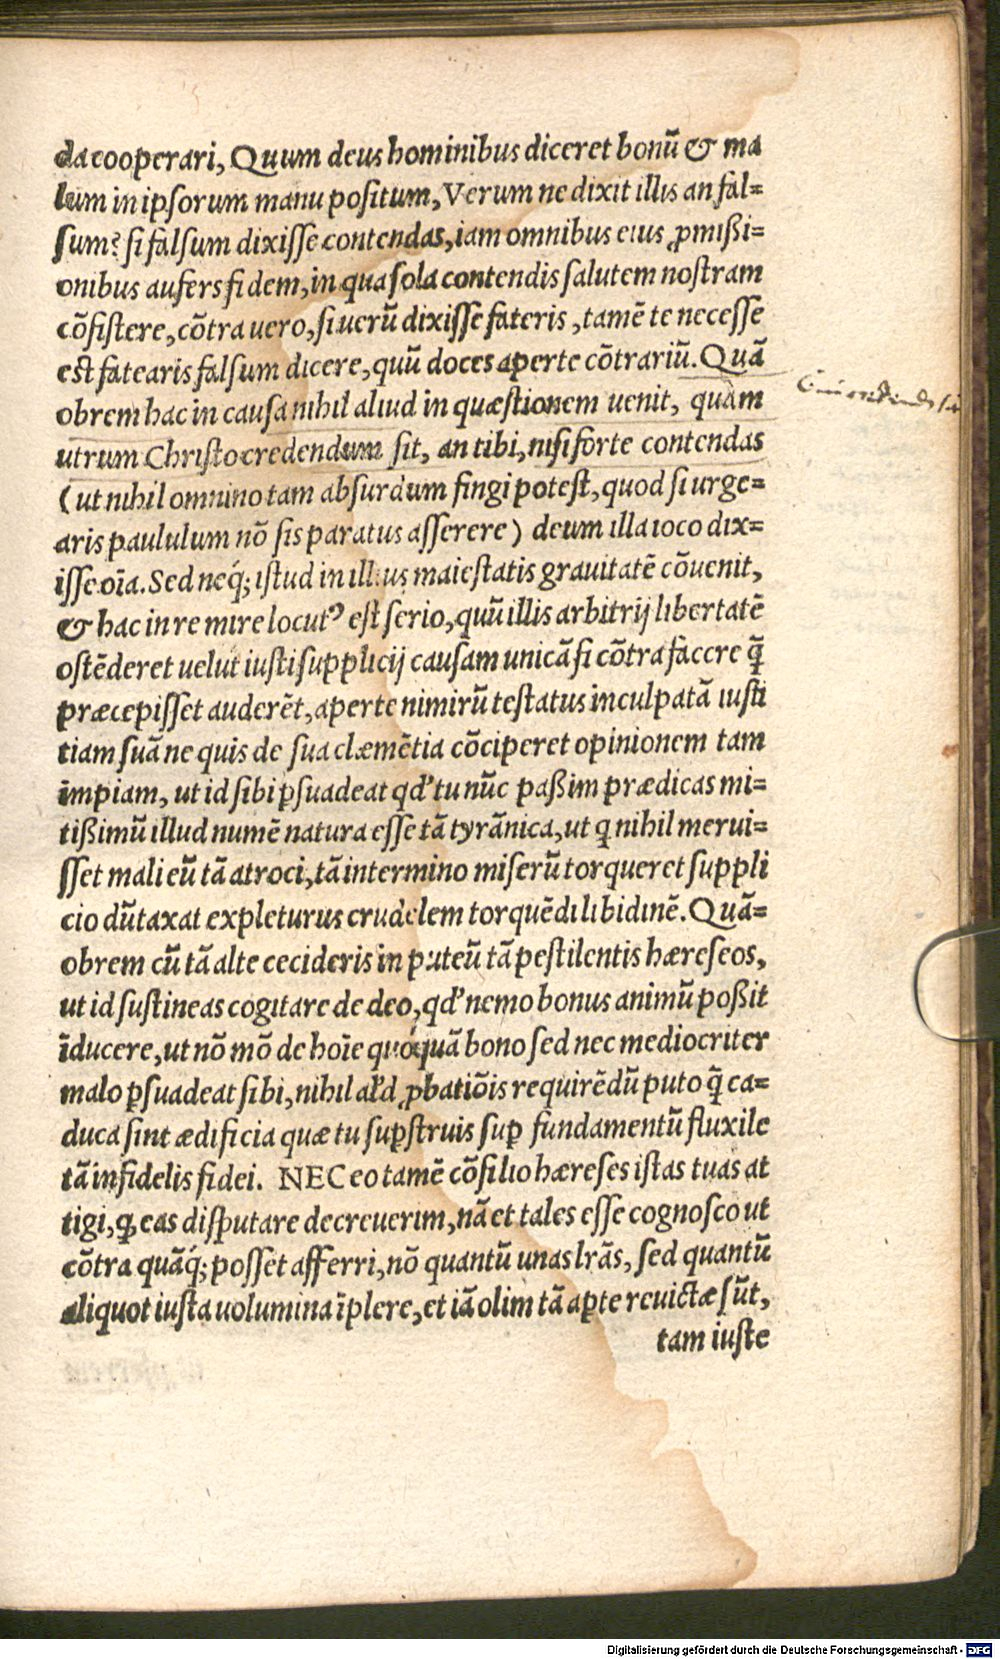 da cooperari, Quum deus hominibus diceret bonũ & ma
lum in ipsorum manu positum, Verum ne dixit illis an fal=
sum? si falsum dixisse contendas, iam omnibus eius ꝓmißi=
onibus aufers fidem, in qua sola contendis salutem nostram
cõsistere, cõtra uero, si uerũ dixisse fateris, tamẽ te necesse
est fatearis falsum dicere, quũ doces aperte cõtrariũ. Quã
obrem hac in causa nihil aliud in quæstionem uenit, quam
utrum Christo credendum sit, an tibi, nisi forte contendas
(ut nihil omnino tam absurdum fingi potest, quod si urge=
aris paululum nõ sis paratus asserere) deum illa ioco dix=
isse oĩa. Sed neq́; istud in illius maiestatis grauitatẽ cõuenit,
& hac in re mire locutꝰ est serio, quũ illis arbitrij libertatẽ
ostẽderet uelut iusti supplicij causam unicã si cõtra facere q̃
præcepisset auderẽt, aperte nimirũ testatus inculpatã iusti
tiam suã ne quis de sua clæmẽtia cõciperet opinionem tam
impiam, ut id sibi ꝑsuadeat qď tu nũc paßim prædicas mi=
tißimũ illud numẽ natura esse tã tyrãnica, ut q nihil merui=
sset mali eũ tã atroci, tã intermino miserũ torqueret suppli
cio dũtaxat expleturus crudelem torquẽdi libidinẽ. Quã=
obrem cũ tã alte cecideris in puteũ tã pestilentis hæreseos,
ut id sustineas cogitare de deo, qď nemo bonus animũ poßit
ĩducere, ut nõ mõ de hoĩe quoq́uã bono sed nec mediocriter
malo ꝑsuadeat sibi, nihil ałd ꝓbatiõis requirẽdũ puto q̃ ca=
duca sint ædificia quæ tu suꝑstruis suꝑ fundamentũ fluxile
tã infidelis fidei. NEC eo tamẽ cõsilio hæreses istas tuas at
tigi, ꝙ eas disputare decreuerim, nã et tales esse cognosco ut
cõtra quãq́; posset afferri, nõ quantũ unas lrãs, sed quantũ
aliquot iusta uolumina ĩplere, et iã olim tã aꝑte reuictæ sũt,
tam iuste
Digitalisierung gefördert durch die Deutsche Forschungsgemeinschaft - DFG